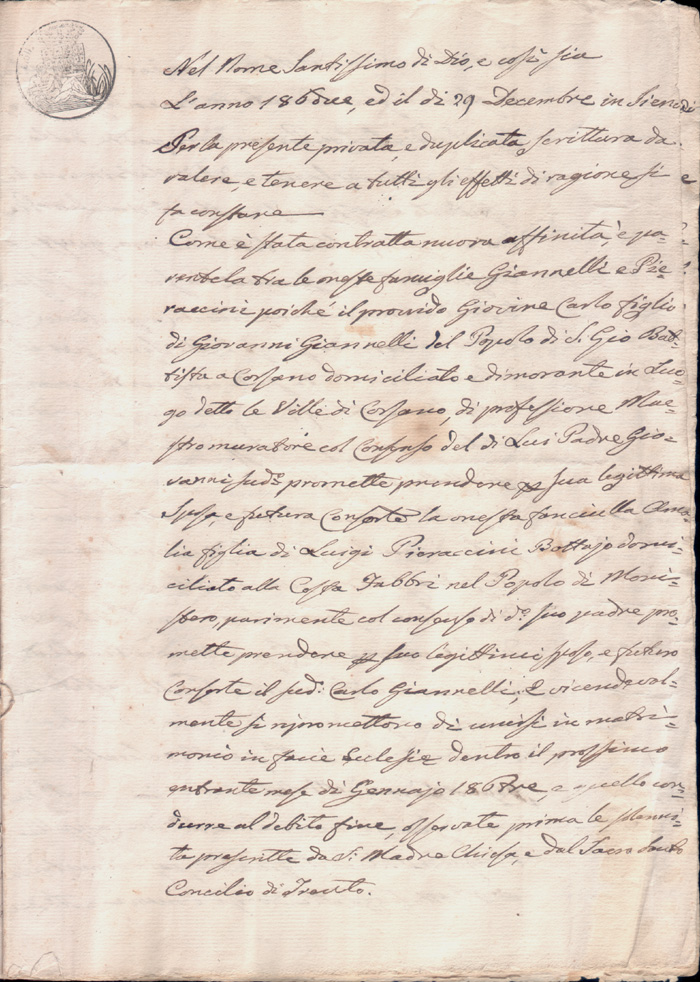 Nel Nome Santissimo di Dio, e così sia
L'anno 186due, ed il di 29 Decembre in Siena
Per la presente privata, e duplicata scrittura da
valere, e tenere a tutti gli effetti di ragione si
fa constare
Come è stata contratta nuova affinità, e pa=
rentela tra le oneste famiglie Giannelli e Pie=
raccini poiché il provido Giovine Carlo figlio
di Giovanni Giannelli del Popolo di S. Gio Bat=
tista a Corsano domiciliato e dimorante in Luo=
go detto le Ville di Corsano, di professione Mae=
stro muratore col Consenso del di Lui Padre Gio=
vanni sud.º promette, prendere p sua legittima
Sposa, e futura Consorte la onesta fanciulla Ama=
lia figlia di Luigi Pieraccini Bottajo domi=
ciliato alla Costa Fabbri nel Popolo di Moni=
stero, parimente col consenso di d.º suo padre pro=
mette prendere p suo legittimi sposo, e futuro
Consorte il sud.º Carlo Giannelli, E vicendeval=
mente si ripromettono di unirsi in matri=
monio in facie Eclesie dentro il prossimo
entrante mese di Gennajo 186tre, e quello con=
durre al debito fine, osservate prima le solenni=
tà prescritte da S. Madre Chiesa, e dal Sacro Santo
Concilio di Trento.